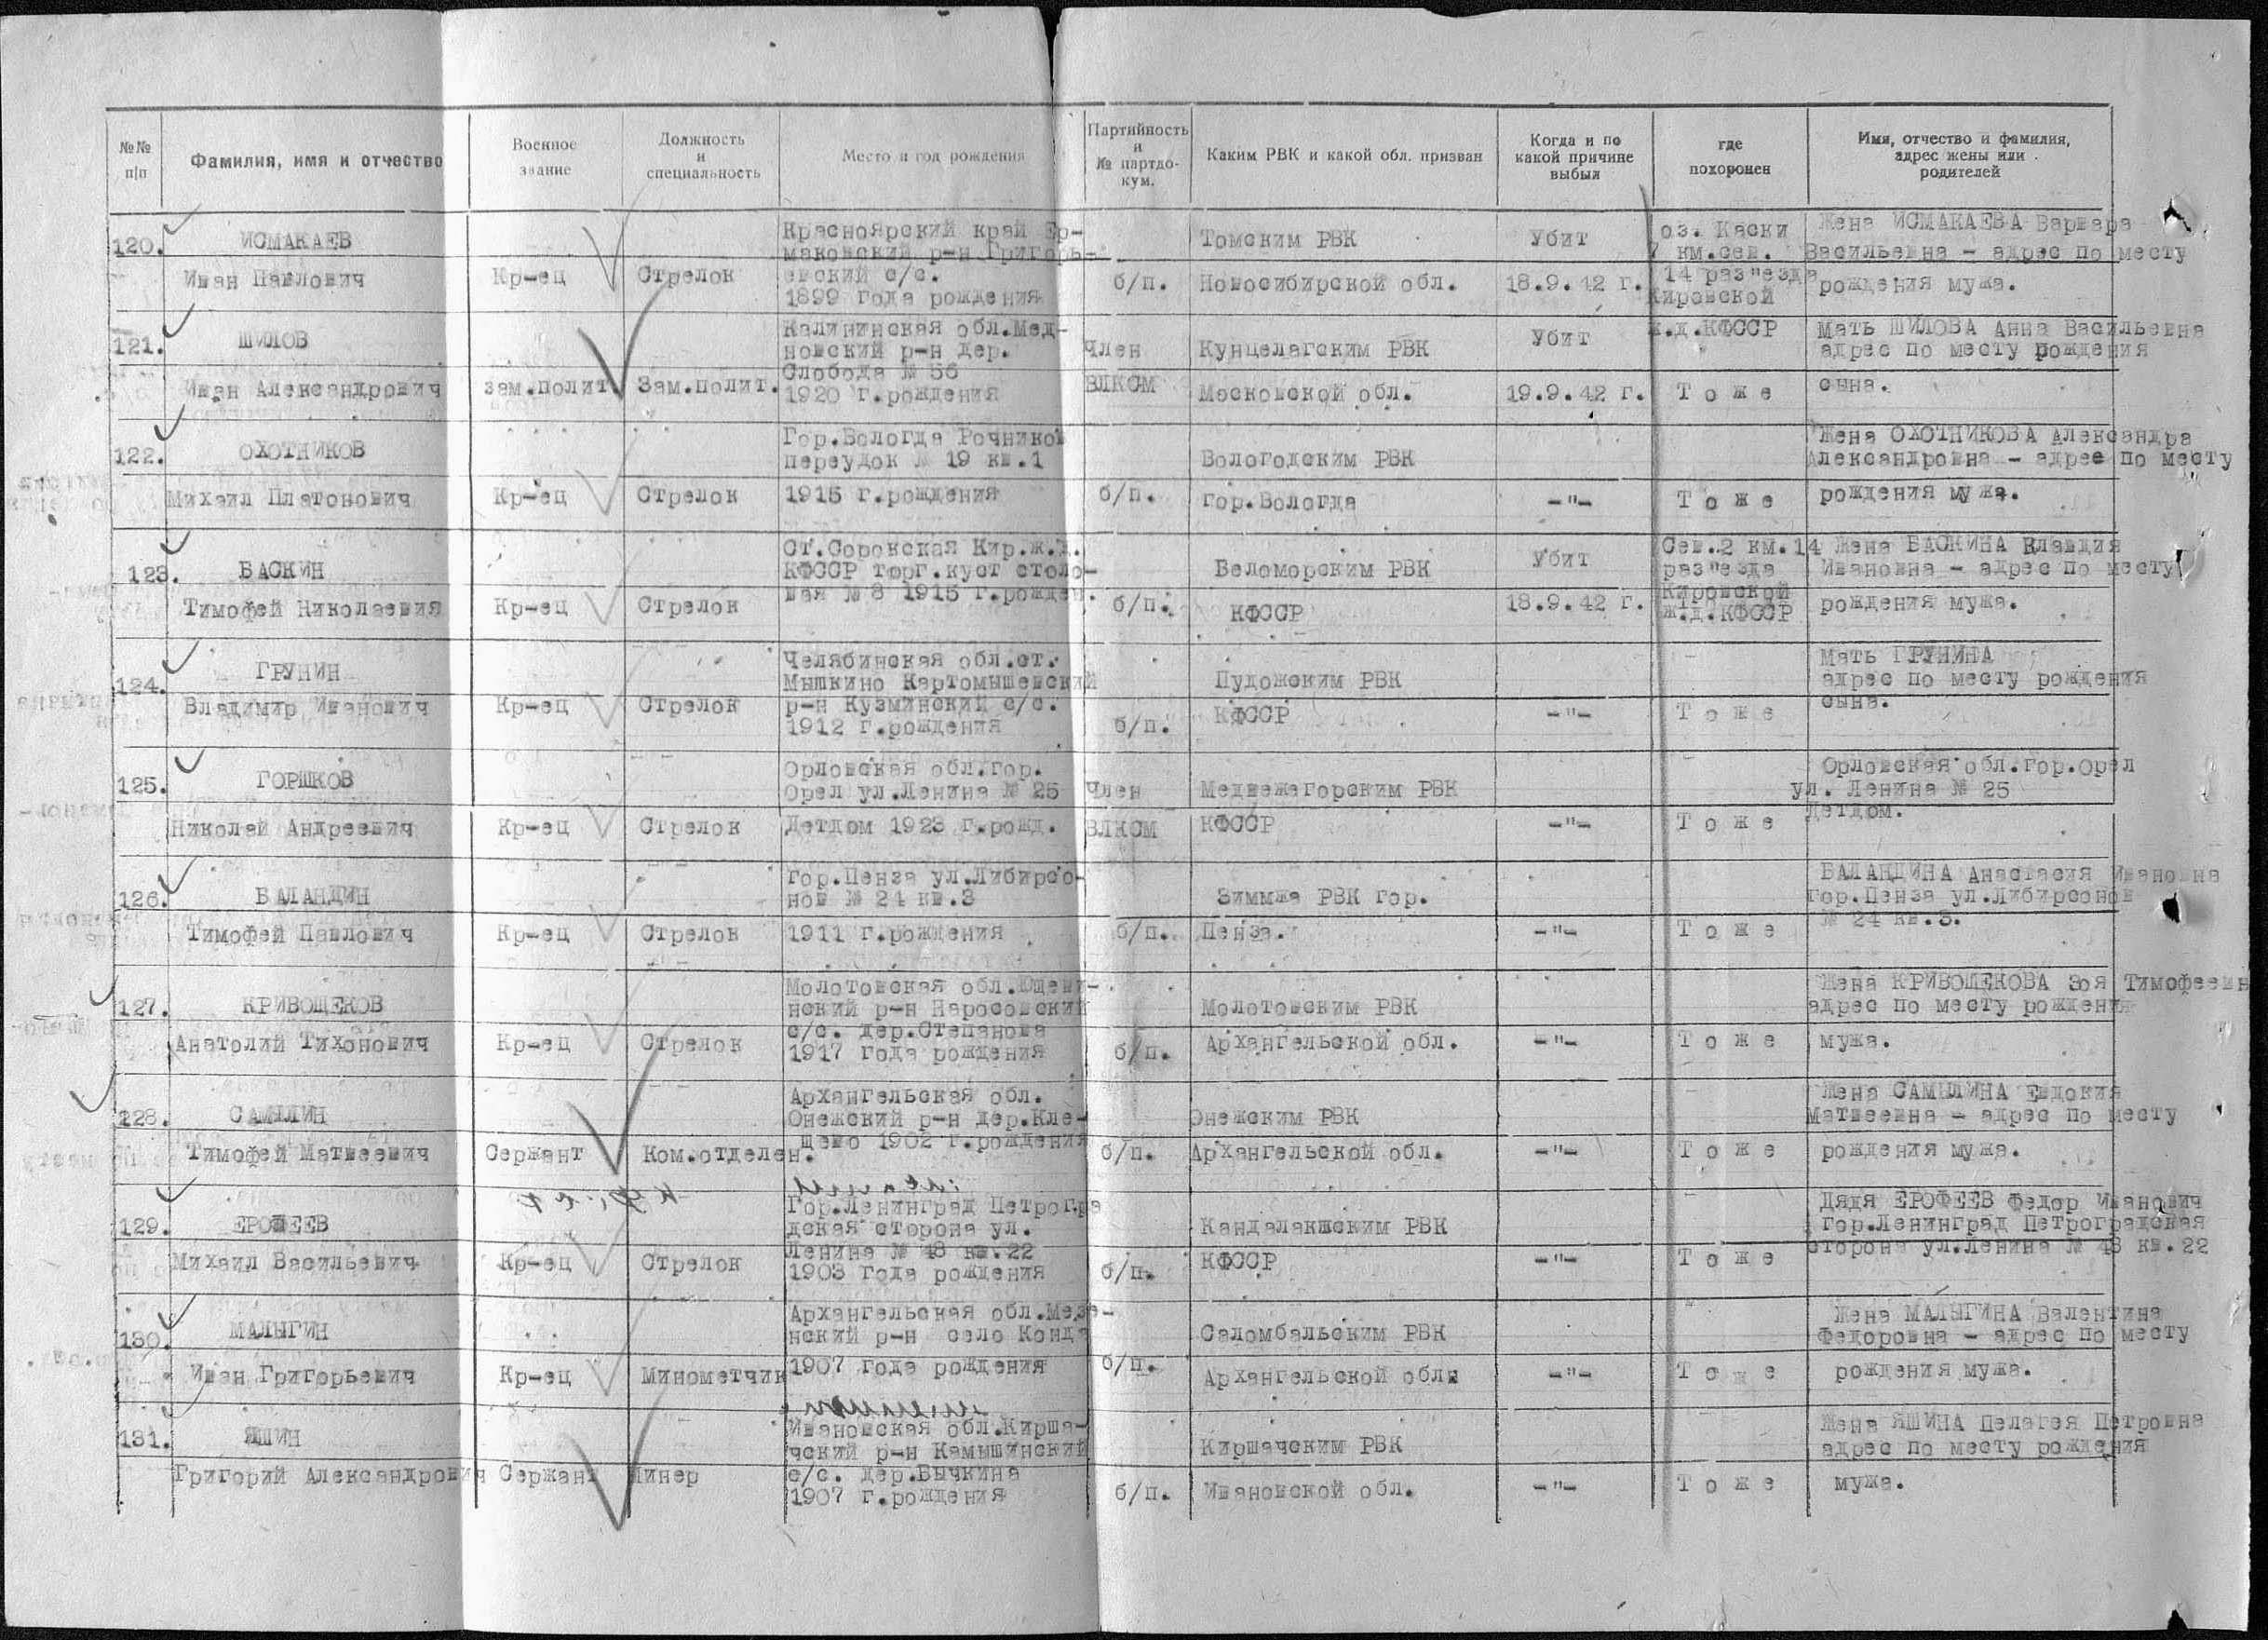 №№ п/п
Фамилия, имя и отчество
Военное звание
Должность и специальность
Место и год рождения
Партийность и № партдо-кум.
Каким РВК и какой обл. призван
Когда и по какой причине выбыл
где похоронен
Имя, отчество и фамилия, адрес жены или родителей
120. ИСМАКАЕВ
Иван Павлович
Кр-ец
Стрелок
Красноярский край Ер-
маковский р-н Григорь-
евский с/с.
1899 года рождения
б/п.
Томским РВК
Новосибирской обл.
Убит
18.9.42 г.
оз. Каски
7 км.сев.
14 раз"езда
Кировской
ж.д.КФССР
Жена ИСМАКАЕВА Варвара
Васильевна - адрес по месту
рождения мужа.
121. ШИЛОВ
Иван Александрович
зам.полит
Зам.полит.
Калининская обл.Мед-
новский р-н дер.
Слобода № 56
1920 г.рождения
Член
ВЛКСМ
Кунцелагским РВК
Московской обл.
Убит
19.9.42 г.
Т о ж е
Мать ШИЛОВА Анна Васильевна
адрес по месту рождения
сына.
122. ОХОТНИКОВ
Михаил Платонович
Кр-ец
Стрелок
Гор.Вологда Рочников
переудок № 19 кв.1
1915 г.рождения
б/п.
Вологодским РВК
гор.Вологда
-"-
Т о ж е
Жена ОХОТНИКОВА Александра
Александровна - адрес по месту
рождения мужа.
123. БАСКИН
Тимофей Николаевия
Кр-ец
Стрелок
Ст.Сорокская Кир.ж.д.
КФССР торг.куст столо-
вая № 8 1915 г.рожден.
б/п.
Беломорским РВК
КФССР
Убит
18.9.42 г.
Сев.2 км.14
раз"езда
Кировской
ж.д.КФССР
Жена БАСКИНА Клавдия
Ивановна - адрес по месту
рождения мужа.
124. ГРУНИН
Владимир Иванович
Кр-ец
Стрелок
Челябинская обл.ст.
Мышкино Картомышевский
р-н Кузминский с/с.
1912 г.рождения
б/п.
Пудожским РВК
КФССР
-"-
Т о ж е
Мать ГРУНИНА
адрес по месту рождения
сына.
125. ГОРШКОВ
Николай Андреевич
Кр-ец
Стрелок
Орловская обл.гор.
Орел ул.Ленина № 25
Детдом 1923 г.рожд.
Член
ВЛКСМ
Медвежагорским РВК
КФССР
-"-
Т о ж е
Орловская обл.гор.Орел
ул. Ленина № 25
Детдом.
126. БАЛАНДИН
Тимофей Павлович
Кр-ец
Стрелок
гор.Пенза ул.Либирсо-
нов № 24 кв.3
1911 г.рождения
б/п.
Зиммжа РВК гор.
Пенза.
-"-
Т о ж е
БАЛАНДИНА Анастасия Ивановна
гор.Пенза ул.Либирсонов
№ 24 кв.3.
127. КРИВОЩЕКОВ
Анатолий Тихонович
Кр-ец
Стрелок
Молотовская обл.Ющеви-
нский р-н Наросовский
с/с. дер.Степанова
1917 года рождения
б/п.
Молотовским РВК
Архангельской обл.
-"-
Т о ж е
Жена КРИВОЩЕКОВА Зоя Тимофеевн
адрес по месту рождения
мужа.
128. САМЫЛИН
Тимофей Матвеевич
Сержант
Ком.отделен.
Архангельская обл.
Онежский р-н дер.Кле-
щево 1902 г.рождения
б/п.
Онежским РВК
Архангельской обл.
-"-
Т о ж е
Жена САМЫЛИНА Евдокия
Матвеевна - адрес по месту
рождения мужа.
129. ЕРОФЕЕВ
Михаил Васильевич
Кр-ец
Стрелок
Гор.Ленинград Петрогра
дская сторона ул.
Ленина № 48 кв.22
1903 года рождения
б/п.
Кандалакшским РВК
КФССР
-"-
Т о ж е
Дядя ЕРОФЕЕВ Федор Иванович
гор.Ленинград Петроградская
сторона ул.Ленина № 48 кв.22
130. МАЛЫГИН
Иван Григорьевич
Кр-ец
Минометчик
Архангельская обл.Мезе-
нский р-н село Конда
1907 года рождения
б/п.
Саломбальским РВК
Архангельской обл.
-"-
Т о ж е
Жена МАЛЫГИНА Валентина
Федоровна - адрес по месту
рождения мужа.
131. ЯШИН
Григорий Александрович
Сержант
Минер
Ивановская обл.Киржа-
чский р-н Камышинский
с/с. дер.Бычкина
1907 г.рождения
б/п.
Киржачским РВК
Ивановской обл.
-"-
Т о ж е
Жена ЯШИНА Пелагея Петровна
адрес по месту рождения
мужа.